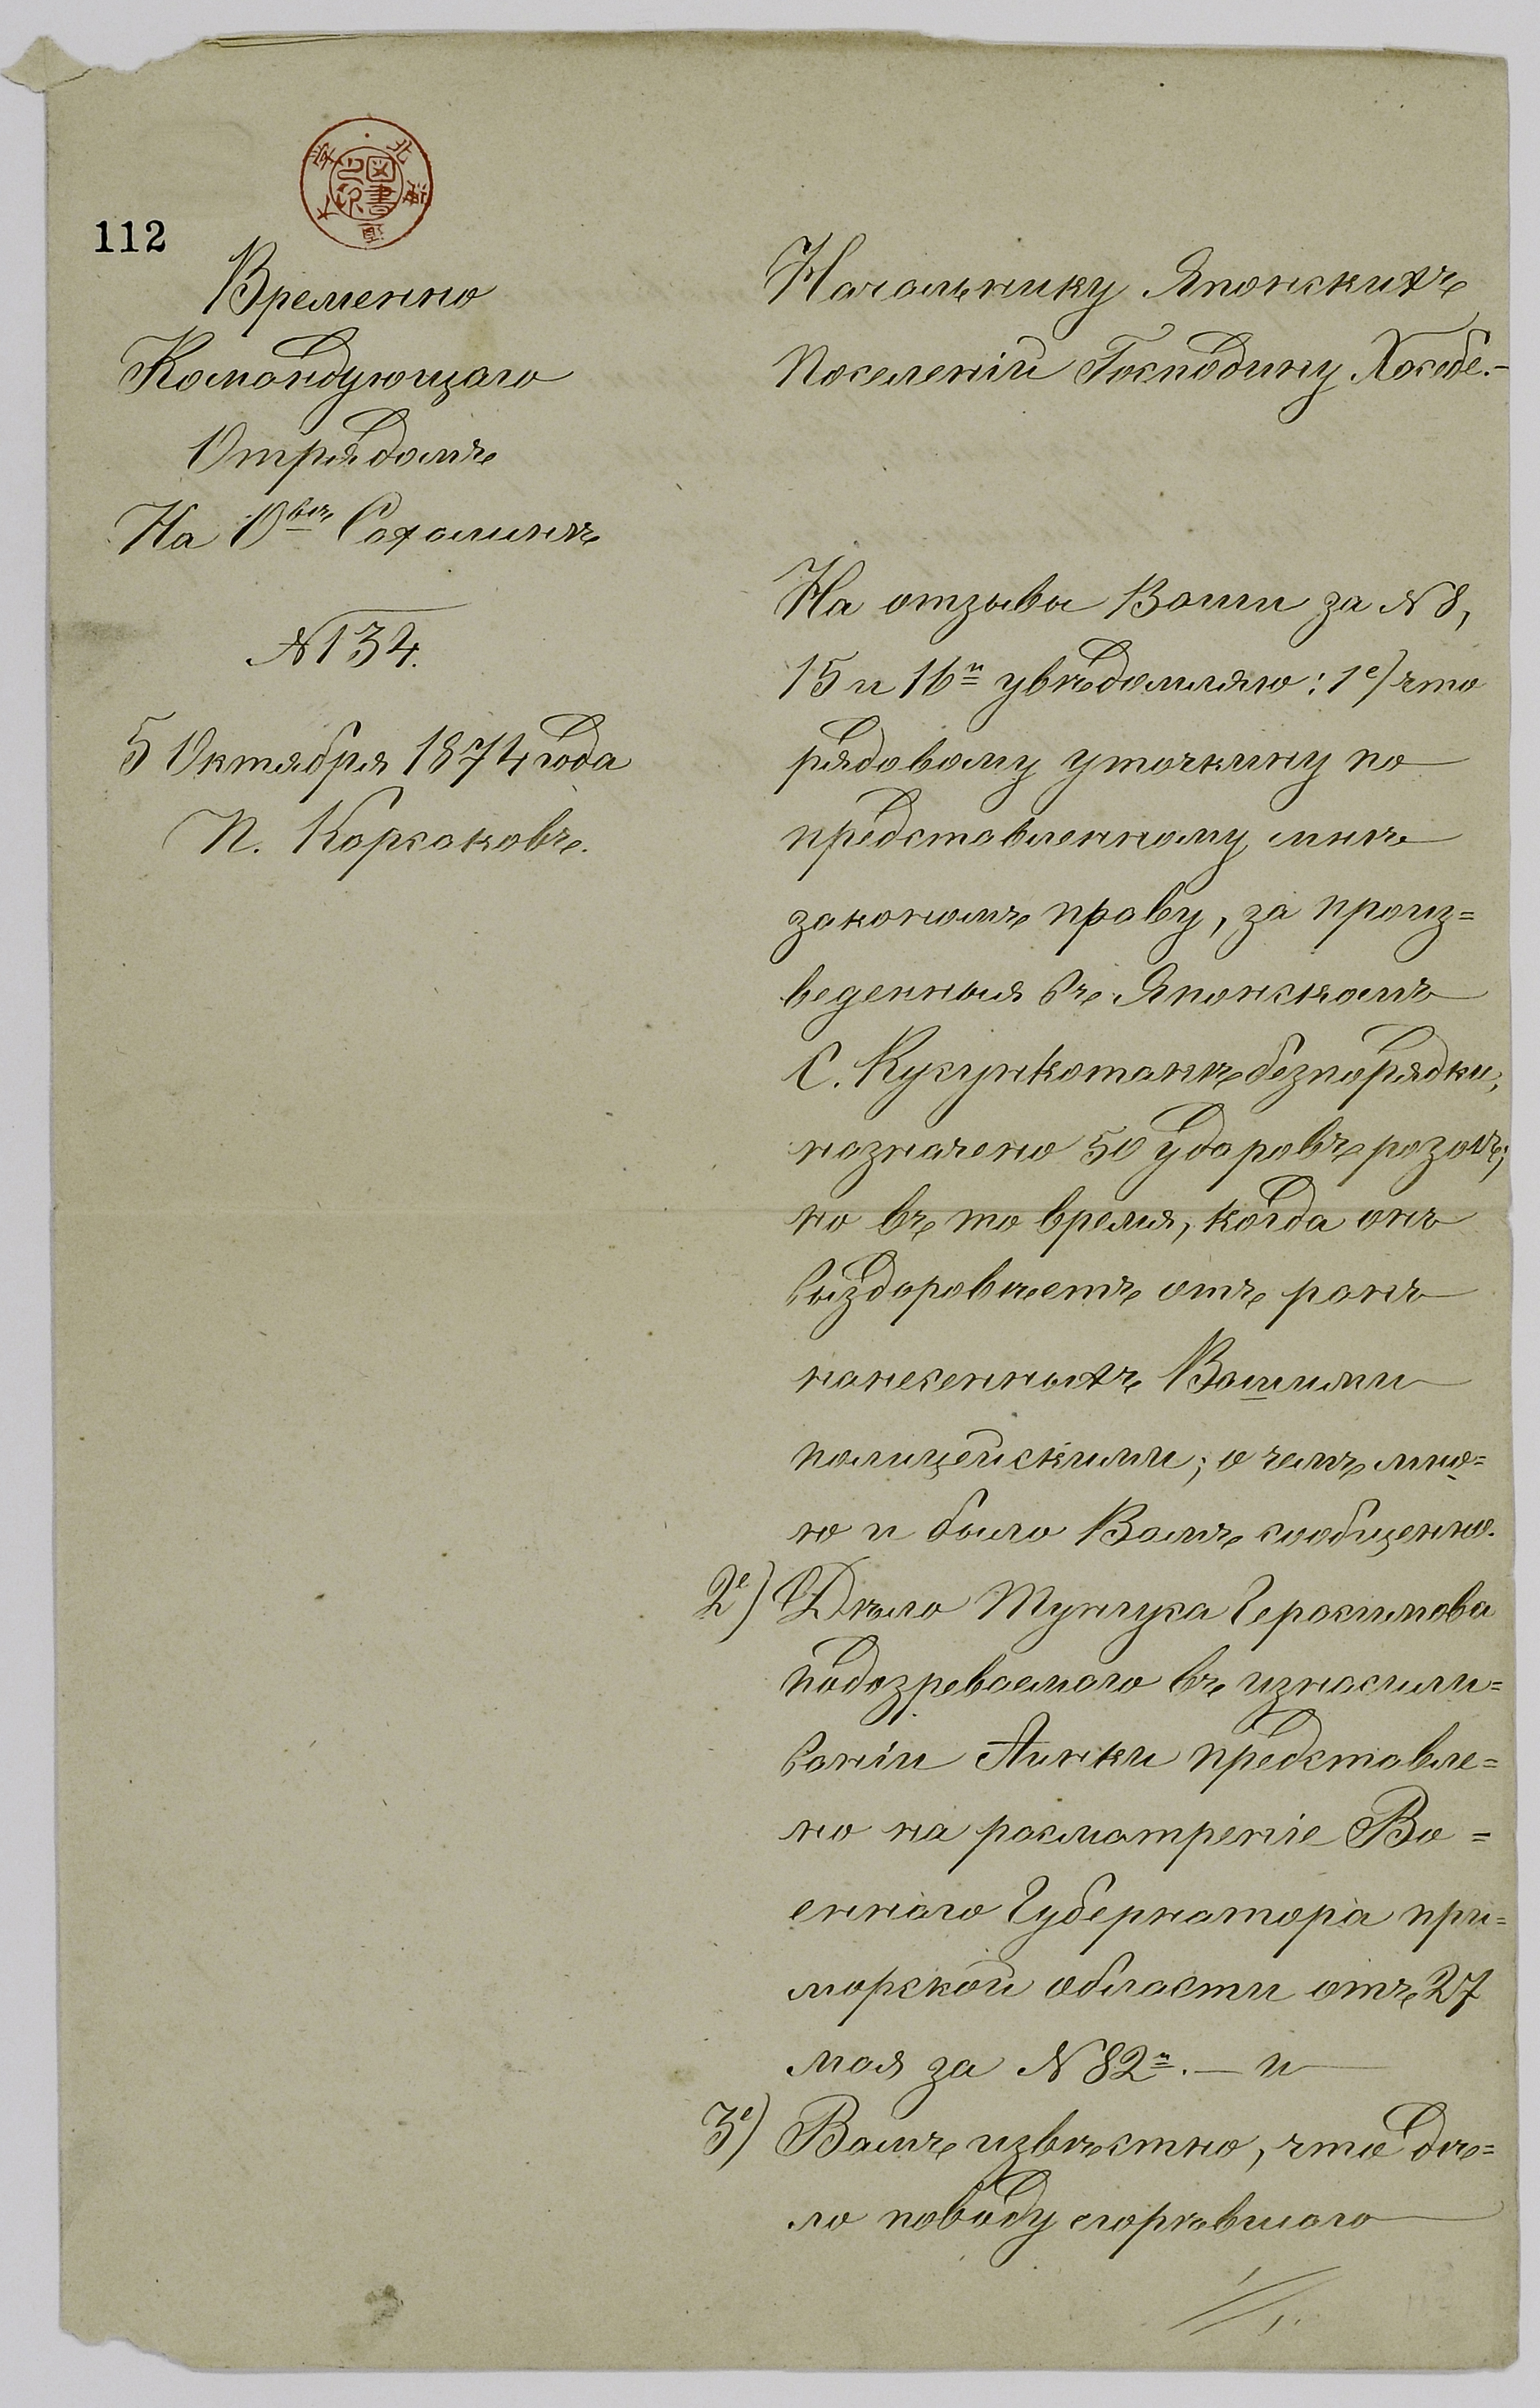 112
北海道大学
図書之印
Временно
Командующаго
Отрядомъ
На О-вѣ Сахалинѣ
N 134.
5 Октября 1874 года
П. Корсаковъ.
Начальнику Японскихъ
Поселеній Господину Хасебе.-
На отзывы Ваши за N 8,
15 и 16й увѣдомляю: 1е) что
рядовому Уточкину по
представленному мнѣ
закономъ праву, за произ=
веденныя въ Японскомъ
С. Кусункотанѣ безпорядки,
назначено 50 ударовъ розогъ;
но въ то время, когда онъ
выздоровѣетъ отъ ранъ
нанесенныхъ Вашими
полицейскими; о чемъ мно=
ю и было Вамъ сообщенно.
2е) Дѣло Тунгуса Герасимова
подозреваемаго въ изнасили=
ваніи Аинки представле=
но на расмотреніе Во=
еннаго Губернатора при=
морской области отъ 27
мая за N 82й. — и
3е) Вамъ извѣстно, что дѣ=
ло поводу сгорѣвшаго